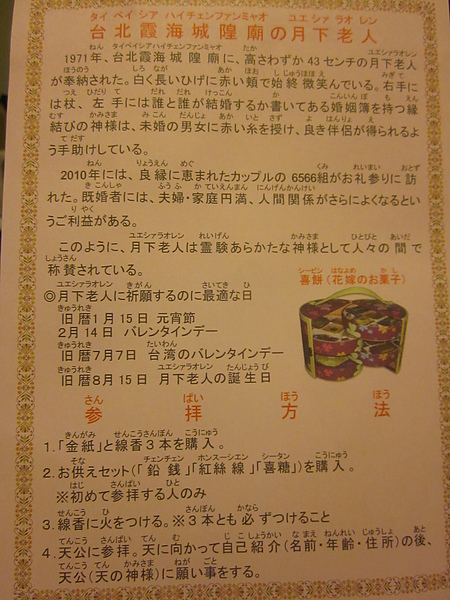 タイ ペイ シア ハイチェンファンミャオ ユエ シァ ラオ レン
台北霞海城隍廟の月下老人
1971年、台北霞海城隍廟に、高さわずか43センチの月下老人
が奉納された。白く長いひげに赤い頬で始終微笑んでいる。右手に
は杖、左手には誰と誰が結婚するか書いてある婚姻簿を持つ縁
結びの神様は、未婚の男女に赤い糸を授け、良き伴侶が得られるよ
う手助けしている。
2010年には、良縁に恵まれたカップルの6566組がお礼参りに訪
れた。既婚者には、夫婦・家庭円満、人間関係がさらによくなるとい
うご利益がある。
このように、月下老人は霊験あらたかな神様として人々の間で
称賛されている。
◎月下老人に祈願するのに最適な日
旧暦1月15日 元宵節
2月14日 バレンタインデー
旧暦7月7日 台湾のバレンタインデー
旧暦8月15日 月下老人の誕生日
シーピン はなよめ か し
喜餅(花嫁のお菓子)
さん ぱい ほう ほう
参拝方法
1.「金紙」と線香3本を購入。
2.お供えセット(「鉛銭」「紅絲線」「喜糖」)を購入。
※初めて参拝する人のみ
3.線香に火をつける。※3本とも必ずつけること
4.天公に参拝。天に向かって自己紹介(名前・年齢・住所)の後、
天公(天の神様)に願い事をする。